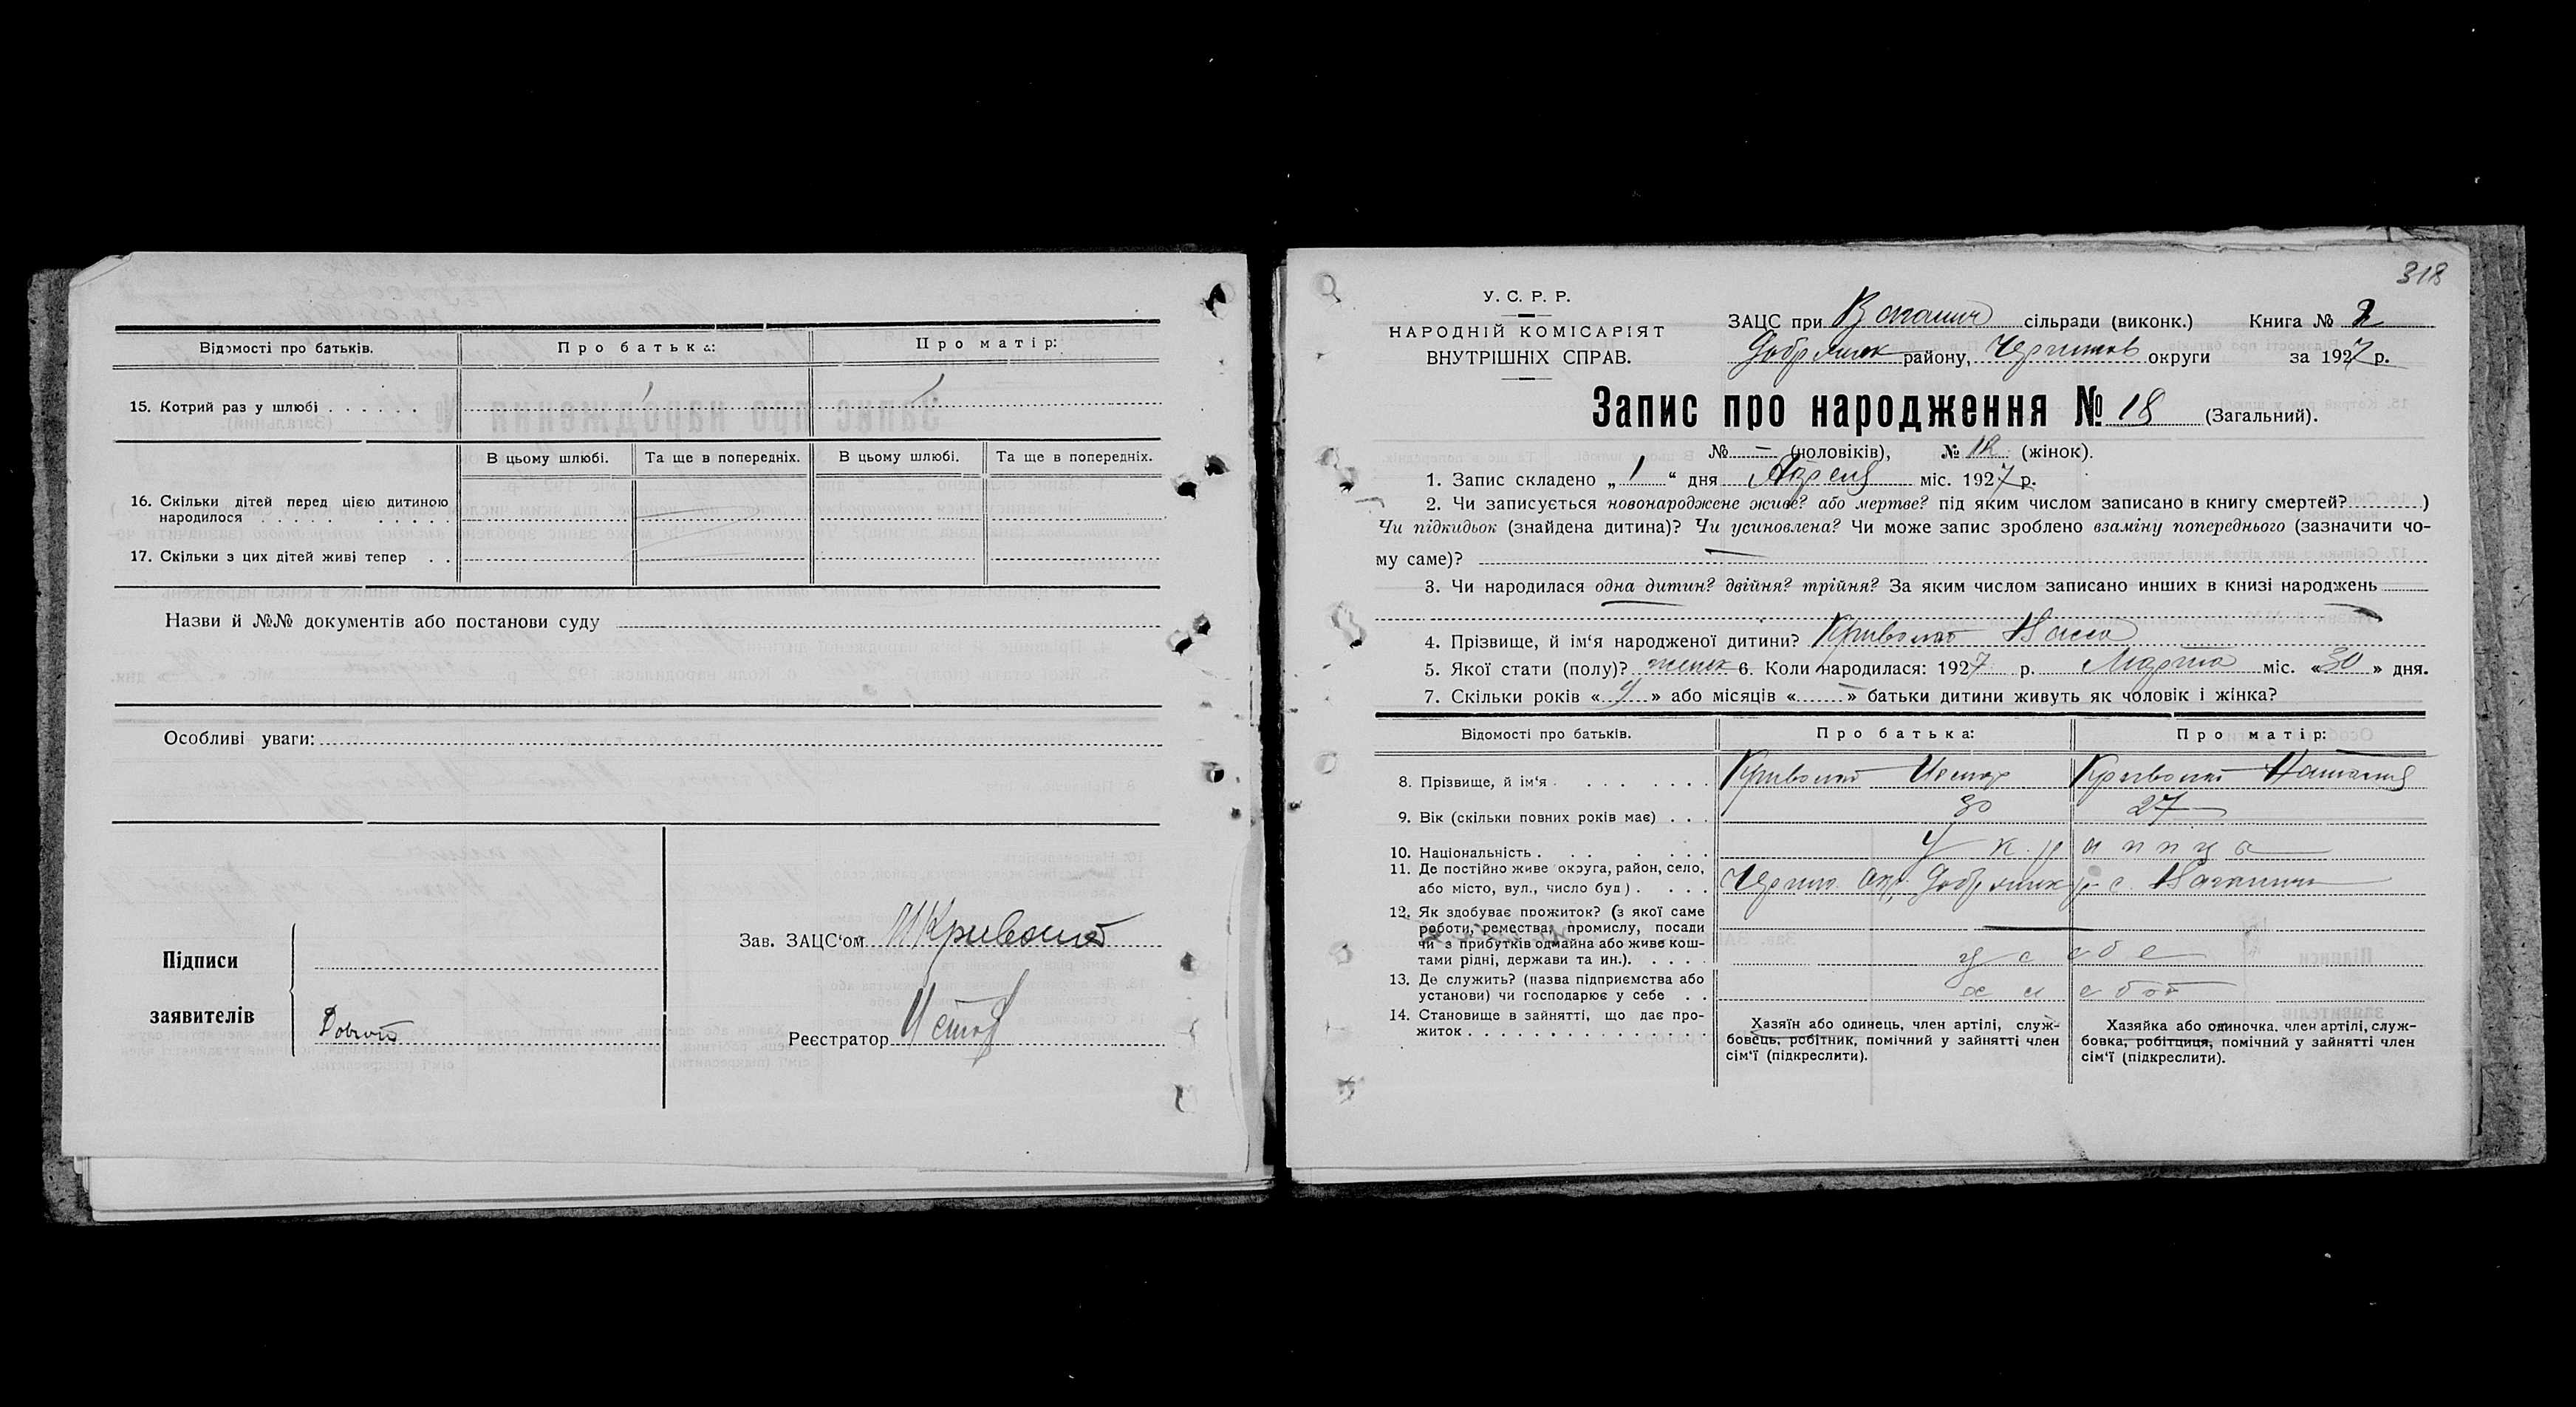 Відомості про батьків. Про батька: Про матір:
15. Котрий раз у шлюбі . . . . . . 1 1
В цьому шлюбі. Та ще в попередніх. В цьому шлюбі. Та ще в попередніх.
16. Скільки дітей перед цією дитиною
народилося . . . . . . . . . .
17. Скільки з цих дітей живі тепер . .
Назви й №№ документів або постанови суду
Особливі уваги:
Підписи
заявителів
Зав. ЗАЦС'ом
Реєстратор
318
У. С. Р. Р.
НАРОДНІЙ КОМІСАРІЯТ
ВНУТРІШНІХ СПРАВ.
ЗАЦС при сільради (виконк.) Книга № 2
Добрянск району, Чернигов округи за 1927 р.
Запис про народження № 18 (Загальний).
№ — (чоловіків), № 12 (жінок).
1. Запис складено „ 1 “ дня Апреля міс. 1927 р.
2. Чи записується новонароджене живе? або мертве? під яким числом записано в книгу смертей? )
Чи підкидьок (знайдена дитина)? Чи усиновлена? Чи може запис зроблено взаміну попереднього (зазначити чо-
му саме)? —
3. Чи народилася одна дитин? двійня? трійня? За яким числом записано инших в книзі народжень
4. Прізвище, й ім'я народженої дитини?
5. Якої стати (полу)? женск 6. Коли народилася: 1927 р. Марта міс. «30» дня.
7. Скільки років « » або місяців « — » батьки дитини живуть як чоловік і жінка?
Відомості про батьків. Про батька: Про матір:
8. Прізвище, й ім'я . . . . . . . .
9. Вік (скільки повних років має) . . . 30 27
10. Національність . . . . . . .
11. Де постійно живе округа, район, село,
або місто, вул., число буд) . . . .
12. Як здобуває прожиток? (з якої саме
роботи, ремества, промислу, посади
чи з прибутків одмайна або живе кош-
тами рідні, держави та ин.). . . . .
у себе
13. Де служить? (назва підприємства або
установи) чи господарює у себе . .
14. Становище в зайнятті, що дає про-
житок . . . . . . . . . . . . . . .
Хазяїн або одинець, член артілі, служ-
бовець, робітник, помічний у зайнятті член
сім'ї (підкреслити).
Хазяйка або одиночка. член артілі, служ-
бовка, робітниця, помічний у зайнятті член
сім'ї (підкреслити).